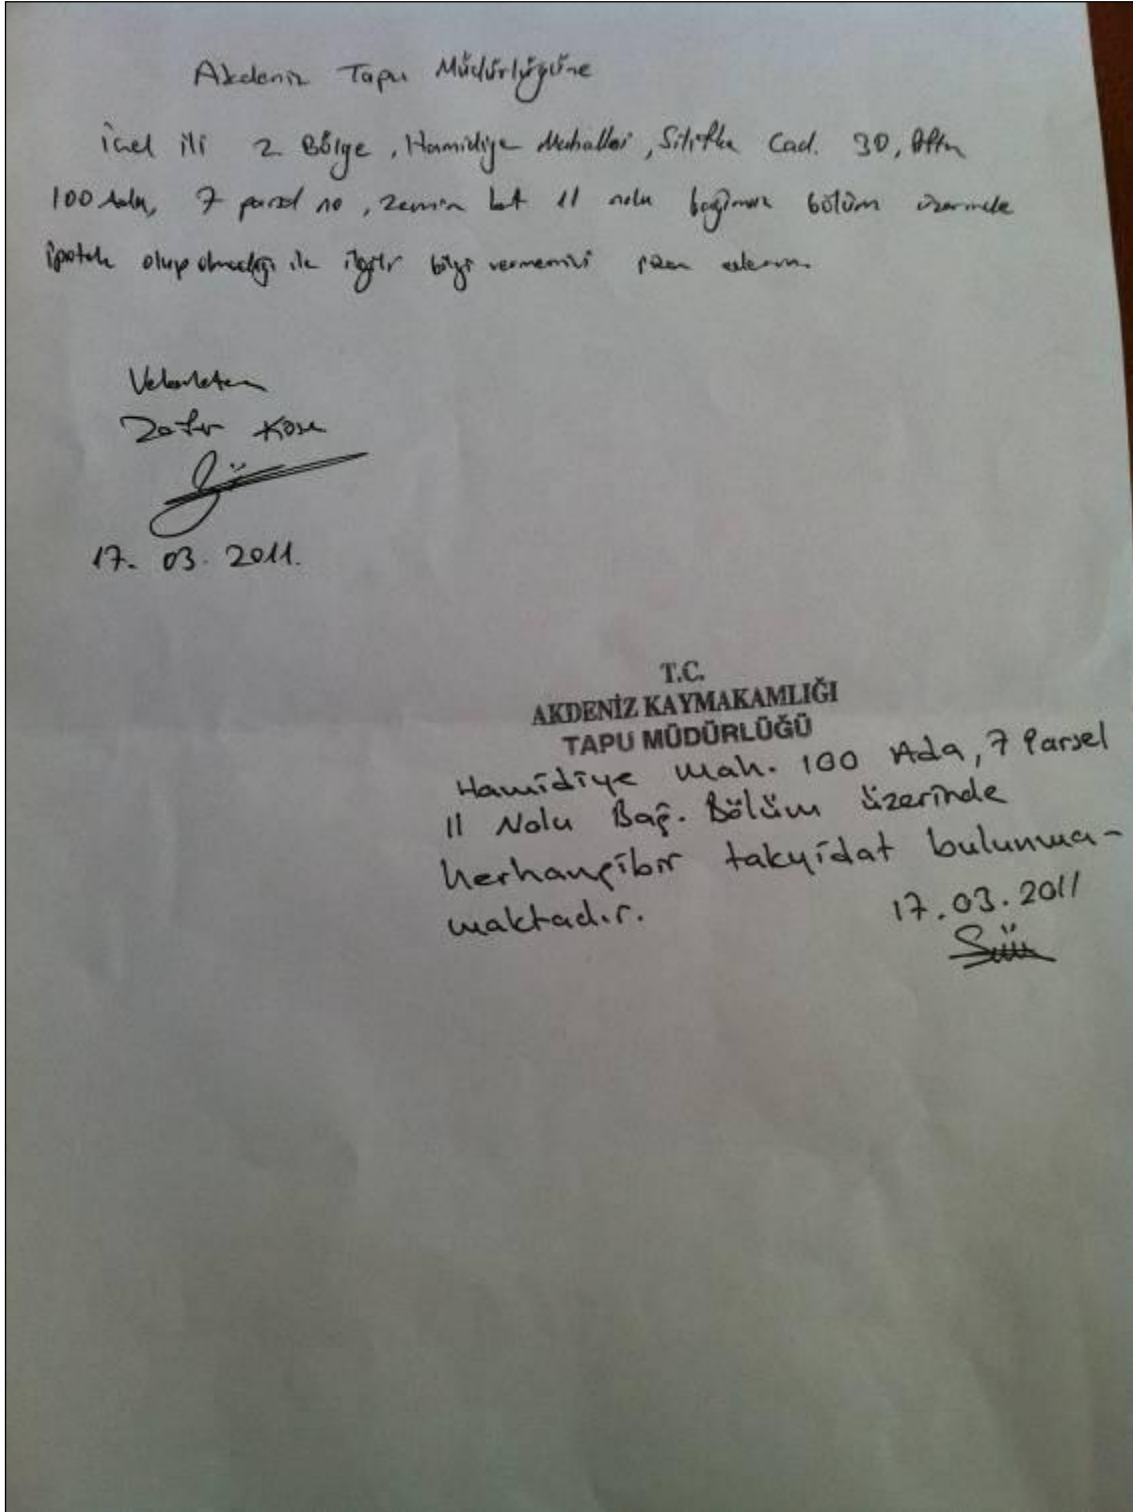 Akdeniz Tapu Müdürlüğüne
İçel ili 2 Bölge, Hamidiye Mahallesi, Silifke Cad. 30, Pafta
100 Ada, 7 parsel no, zemin kat 11 nolu bağımsız bölüm üzerinde
ipotek olup olmadığı ile ilgili bilgi vermenizi ederim
Vekaleten
Zafer Köse
17. 03. 2011.
T.C.
AKDENİZ KAYMAKAMLIĞI
TAPU MÜDÜRLÜĞÜ
Hamidiye Mah. 100 Ada, 7 Parsel
11 Nolu Bağ. Bölüm üzerinde
herhangibir takyidat bulunma-
maktadır.
17.03.2011